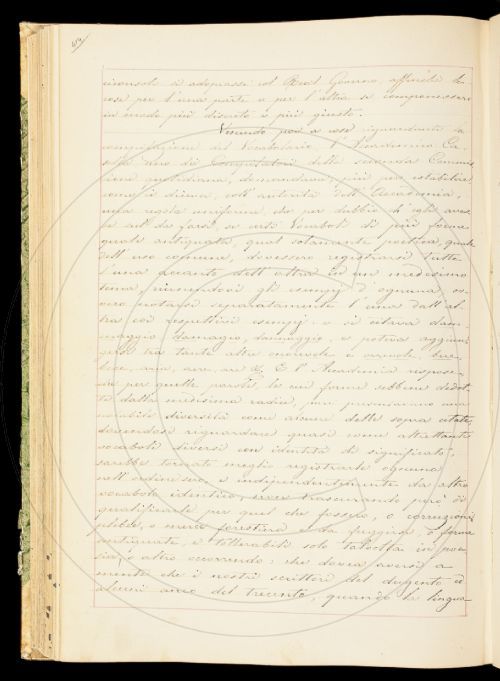 ciconsolo si adoprasse col Real Governo, affinché le
cose per l'una parte e per l'altra si componessero
in modo più discreto e più giusto.
Venendo poi a cose riguardanti la
compilazione del Vocabolario, l'Accademico
uno dei Compilatori della seconda Commis
sione quotidiana, domandava, più per istabilire
come si diceva, coll'autorità dell'Accademia,
una regola uniforme, che per dubbio ch'egli aves
se sul da farsi, se certi Vocaboli di più forme
quale antiquata, qual solamente poetica, quale
dell'uso comune, dovessero registrarsi tutte
l'una accanto dell'altra in un medesimo
tema, riunendovi gli esempj d'ognuna, ov
vero notarsi separatamente l'una dall'al
tra coi respettivi esempj: e si citava dam
maggio, damagio, dannaggio, e poteva aggiun
gersi tra tante altre
E l'Accademia rispose:
che per quelle parole, le cui forme sebbene dedot
te dalla medesima radice, pure presentano una
notabile diversità come alcune delle sopra citate,
dovendosi riguardare quasi come altrettanti
vocaboli diversi con identità di significato;
sarebbe tornato meglio registrarle ognuna
nell'ordine suo, e indipendentemente da altro
vocabolo identico, senza trascurando però di
qualificarle per quel che fossero, o corruzioni
plebee, o merce forestiera e da fuggirsi, o forme
antiquate, e tollerabili solo talvolta in poe
sia, o altro occorrendo: che dovea aversi a
mente che i nostri scrittori del dugento ed
alcuni anco del trecento, quando la lingua